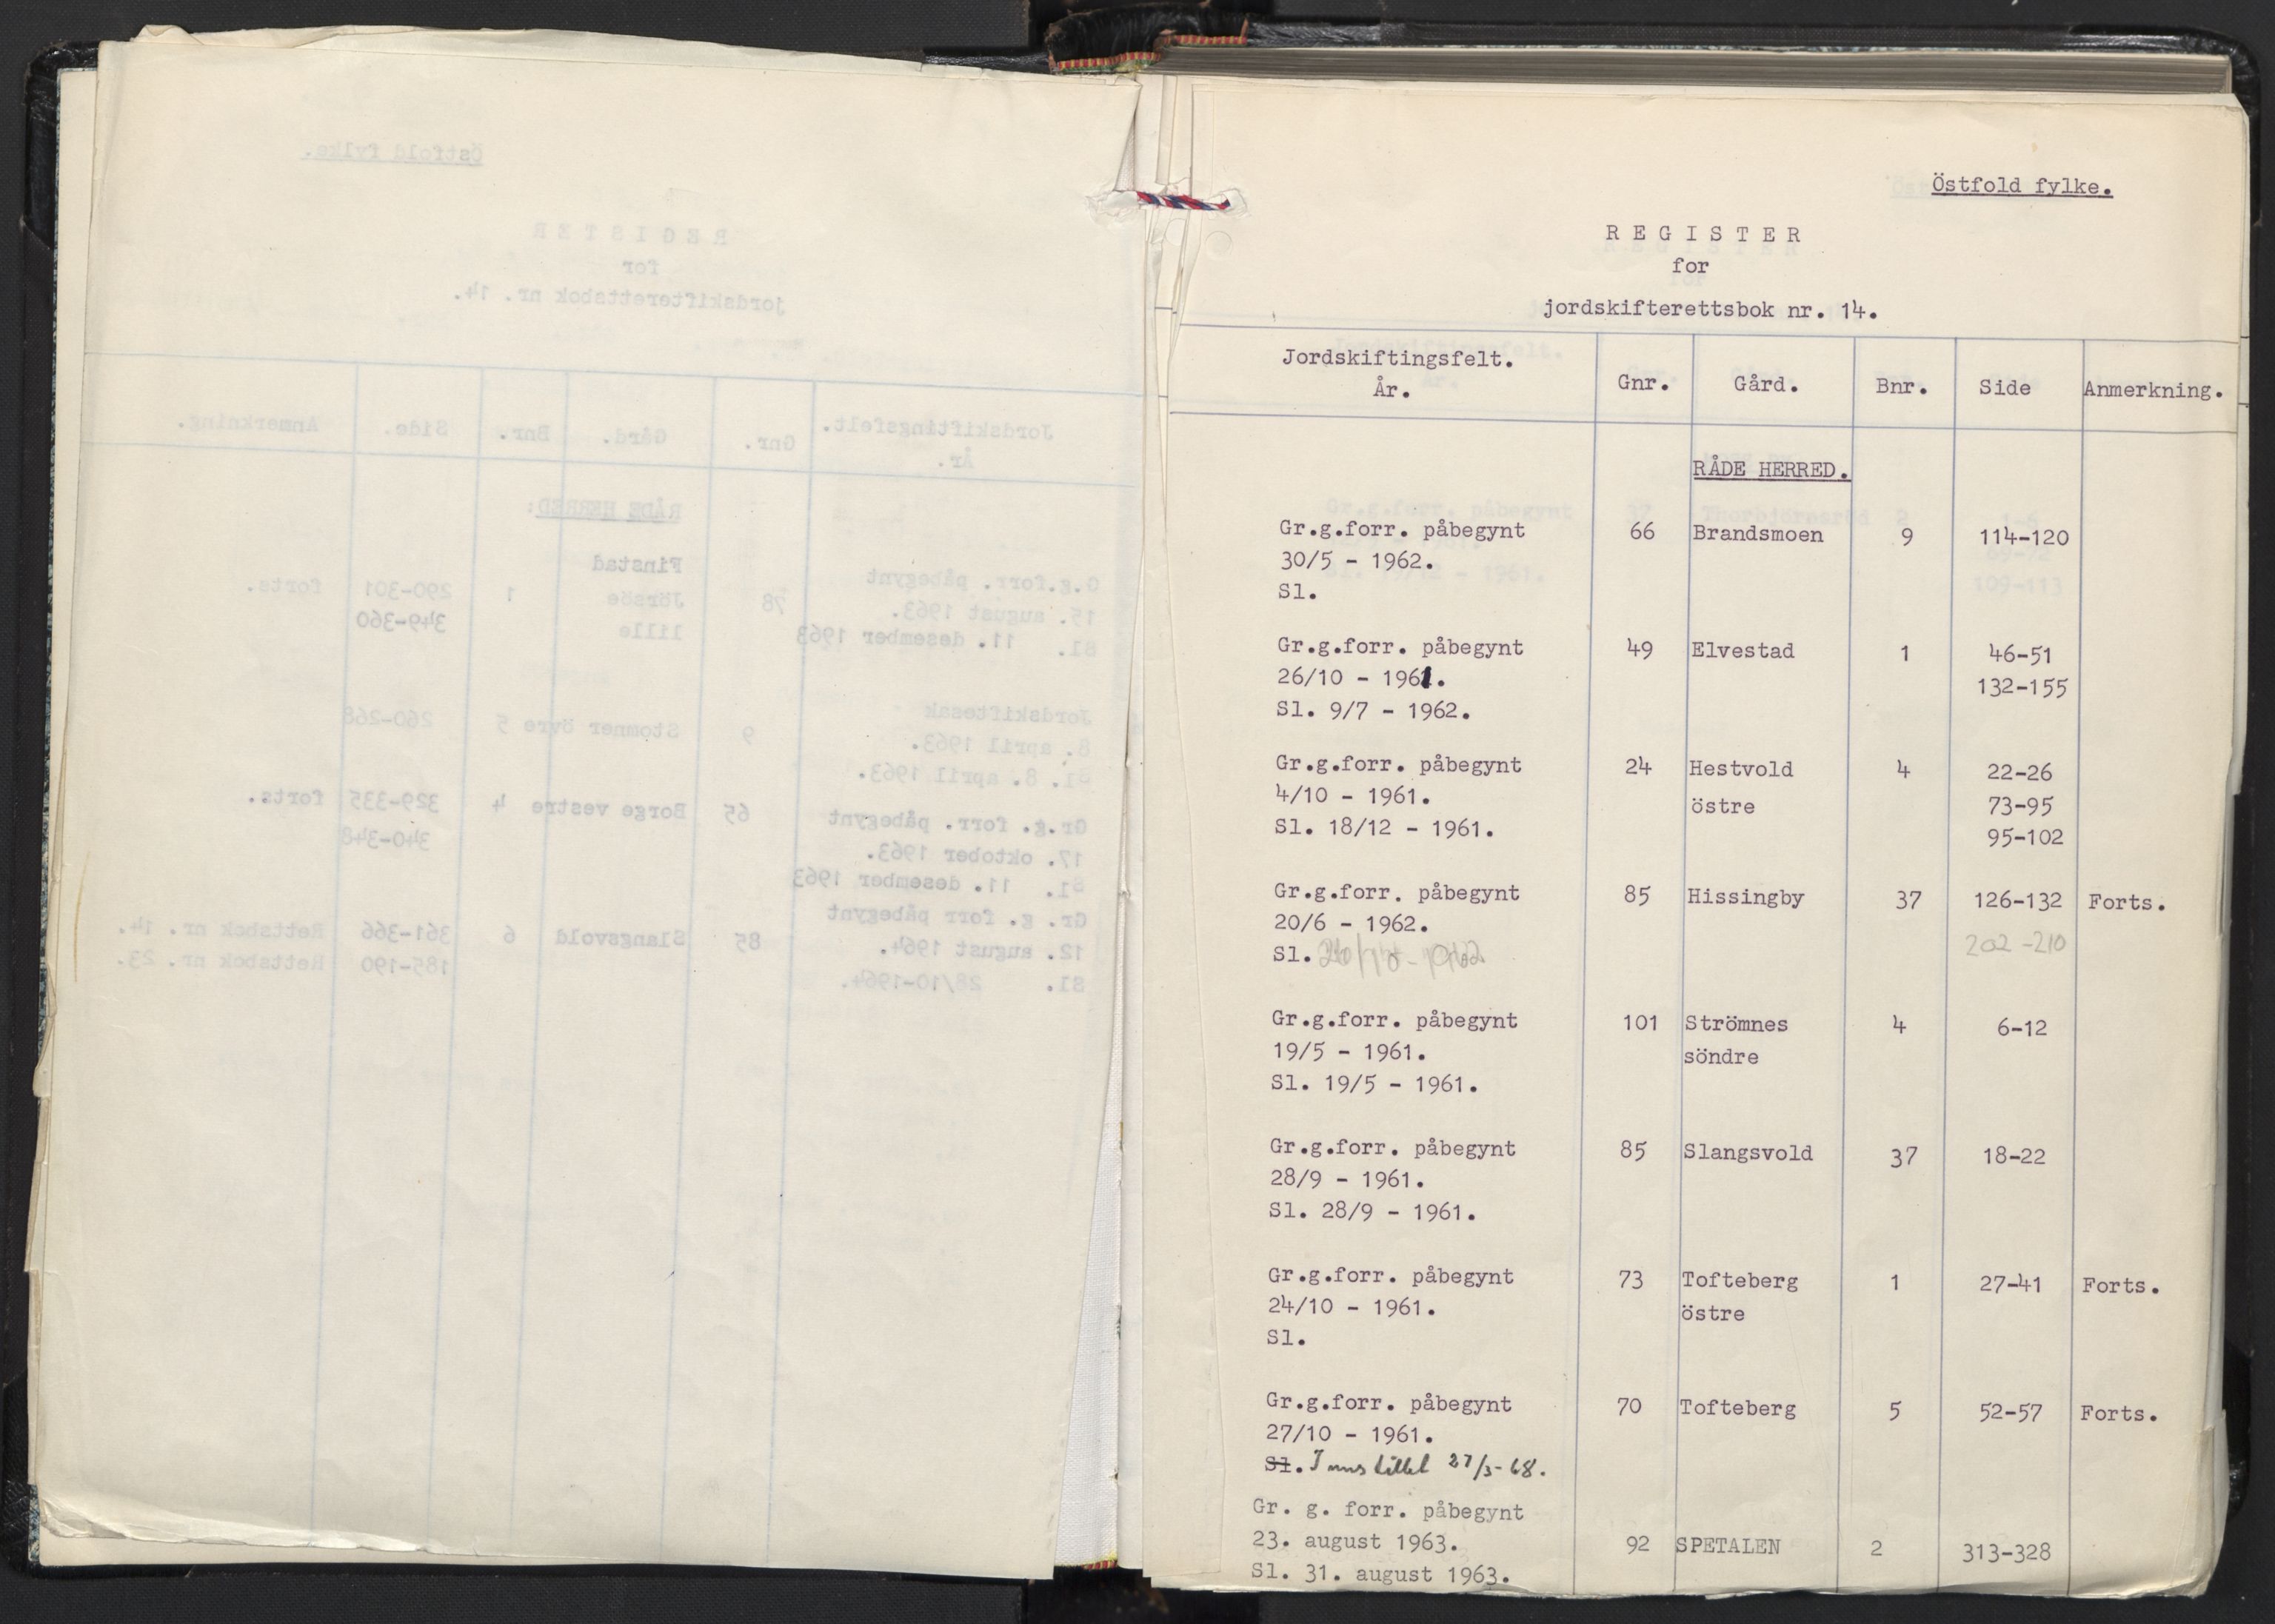 Östfold fylke.
REGISTER
for
jordskifterettsbok nr. 14.
Jordskiftingsfelt. År. Gnr. Gård. Bnr. Side Anmerkning.
RÅDE HERRED.
Gr.g.forr. påbegynt 66 Brandsmoen 9 114-120
30/5 - 1962.
Sl.
Gr.g.forr. påbegynt 49 Elvestad 1 46-51
26/10 - 1961. 132-155
Sl. 9/7 - 1962.
Gr.g.forr. påbegynt 24 Hestvold 4 22-26
4/10 - 1961. östre 73-95
Sl. 18/12 - 1961. 95-102
Gr.g.forr. påbegynt 85 Hissingby 37 126-132 Forts.
20/6 - 1962. 202-210
Sl. 
Gr.g.forr. påbegynt 101 Strömnes 4 6-12
19/5 - 1961. söndre
Sl. 19/5 - 1961.
Gr.g.forr. påbegynt 85 Slangsvold 37 18-22
28/9 - 1961.
Sl. 28/9 - 1961.
Gr.g.forr. påbegynt 73 Tofteberg 1 27-41 Forts.
24/10 - 1961. östre
Sl.
Gr.g.forr. påbegynt 70 Tofteberg 5 52-57 Forts.
27/10 - 1961.
Sl. Innstillet 27/3-68.
Gr. g. forr. påbegynt
23. august 1963. 92 SPETALEN 2 313-328
Sl. 31. august 1963.